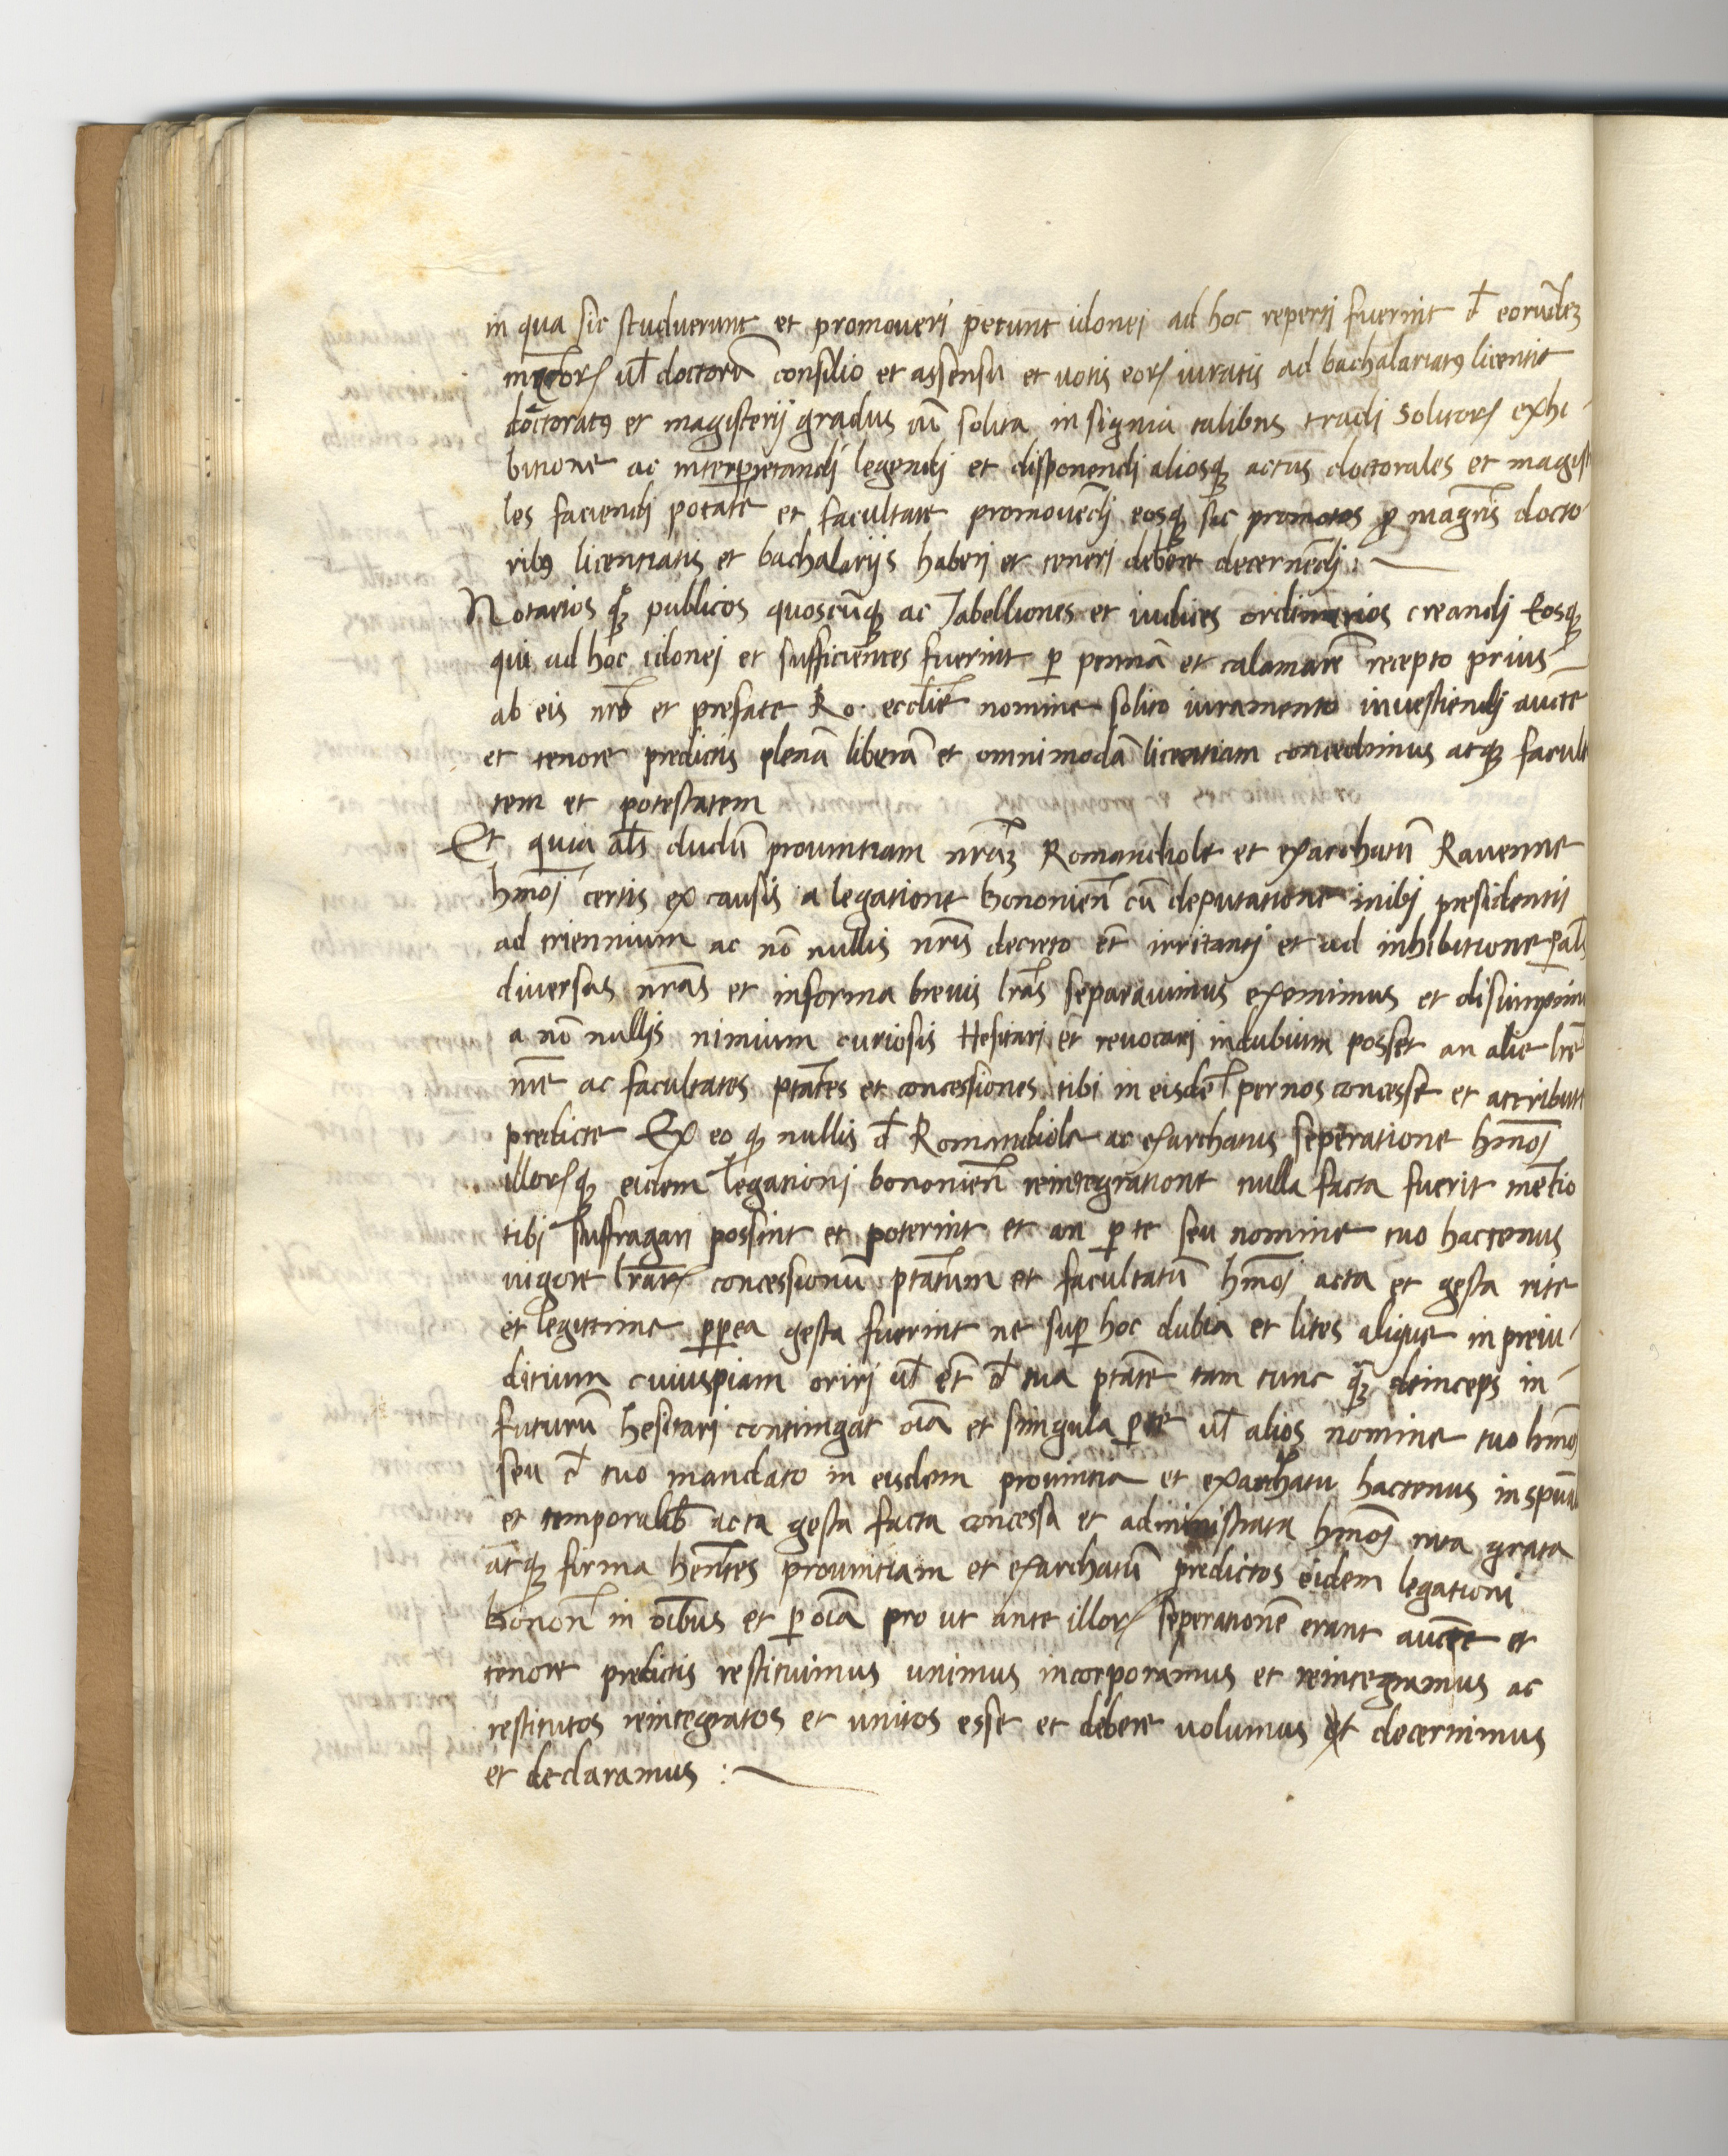 in qua sic studuerunt et promoveri petunt idonei ad hoc reperti fuerint d̄ eorūdez
vl̄ doctorū consilio et assensu et votis eorꝝ iuratis ad bachalariatꝰ licentie
doctoratꝰ et magisterij gradus cū solita insignia talibus tradi solitorꝝ exhi
bitione ac interpretandj legendj et disponendi aliosqꝫ actus doctorales et magist
les faciendj potāte et facultate promovēdj eosqꝫ sic promotos ꝓ magr̄is docto
ribꝰ licentiatis et bachalarijs haberi et teneri debere decernēdj :
Notarios qꝫ publicos quoscūqꝫ ac Tabelliones et iudices ordinarios creandj Eosqꝫ
qui ad hoc idonej et sufficientes fuerint ꝑ pennā et calamare recepto prius
ab eis nr̄o et prefate Ro. eccl̄ie nomine solito iuramento investiendj auctē
et tenore predictis plenā liberā et omnimodā licentiam concedimus atqꝫ facult
tem et potestatem
Et quia al̄s dudū provintiam nr̄az Romandiole et exarchatū Ravenne
hm̄oj certis ex causis a legatione bononien̄ cū deputatione inibj presidentis
ad triennium ac nō nullis nr̄is decreto et̄ irritantj et ad inhibitione
diversas nr̄as et informa brevis lr̄as separavimus exemimus et
a nō nullis nimium curiosis Hesitari et̄ revocari indubium posset an alie lr̄e
nr̄e ac facultates ptātes et concessiones tibi in eisdē pernos concesse et attribute
predicte Ex eo qꝫ nullis d̄ Romandiole ac exarchatus seperatione hm̄oj
illorꝝqꝫ eidem legationj bononien̄ reintegratione nulla facta fuerit mētio
tibi suffragari possint et poterint et an ꝑ te seu nomine tuo hactenus
vigore lr̄arꝝ concessionū ptātum et facultatū hm̄oj acta et gesta rite
et legittime ꝑꝑea gesta fuerint ne suꝑ hoc dubia et lites alique inpreiu
ditium cuiuspiam orirj vl̄ et̄ d̄ tua ptāte tam tunc qꝫ deinceps in
futurū hesitarj contingat oīa et singula ꝑte vl̄ alios nomine tuo hm̄oj
seu d̄ tuo mandato in eisdem provintia et exarchatu hactenus inspūal
et temporalib̄ acta gesta facta concessa et administrata hm̄oj rata grata
atqꝫ firma hentēs provintiam et exarchatū predictos eidem legationi
bonon̄ in oībus et ꝑ oīa pro ut ante illorꝝ seperationē erant auctē et
tenore predictis restituimus unimus incorporamus et reintegramus ac
restitutos reintegratos et unitos esse et debere volumus et decernimus
et declaramus :